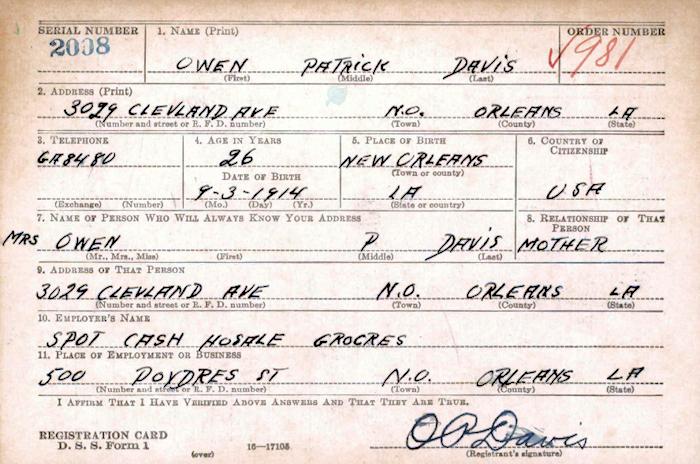 SERIAL NUMBER 1. NAME (Print) ORDER NUMBER
2008 OWEN PATRICK DAVIS √981
(First) (Middle) (Last)
2. ADDRESS (Print)
3029 CLEVLAND AVE N.O. ORLEANS LA
(Number and street or R. F. D. number) (Town) (County) (State)
3. TELEPHONE 4. AGE IN YEARS 5. PLACE OF BIRTH 6. COUNTRY OF CITIZENSHIP
GA8480 26 NEW ORLEANS
DATE OF BIRTH (Town or county)
9-3-1914 LA USA
(Exchange) (Number) (Mo.) (Day) (Yr.) (State or country)
7. NAME OF PERSON WHO WILL ALWAYS KNOW YOUR ADDRESS 8. RELATIONSHIP OF THAT PERSON
MRS OWEN P DAVIS MOTHER
(Mr., Mrs., Miss) (First) (Middle) (Last)
9. ADDRESS OF THAT PERSON
3029 CLEVLAND AVE N.O. ORLEANS LA
(Number and street or R. F. D. number) (Town) (County) (State)
10. EMPLOYER'S NAME
SPOT CASH HOSALE GROGRES
11. PLACE OF EMPLOYMENT OR BUSINESS
500 POYDRES ST N.O. ORLEANS LA
(Number and street or R. F. D. number) (Town) (County) (State)
I AFFIRM THAT I HAVE VERIFIED ABOVE ANSWERS AND THAT THEY ARE TRUE.
REGISTRATION CARD
D. S. S. Form 1 (over) 16—17105 O P Davis
(Registrant's signature)